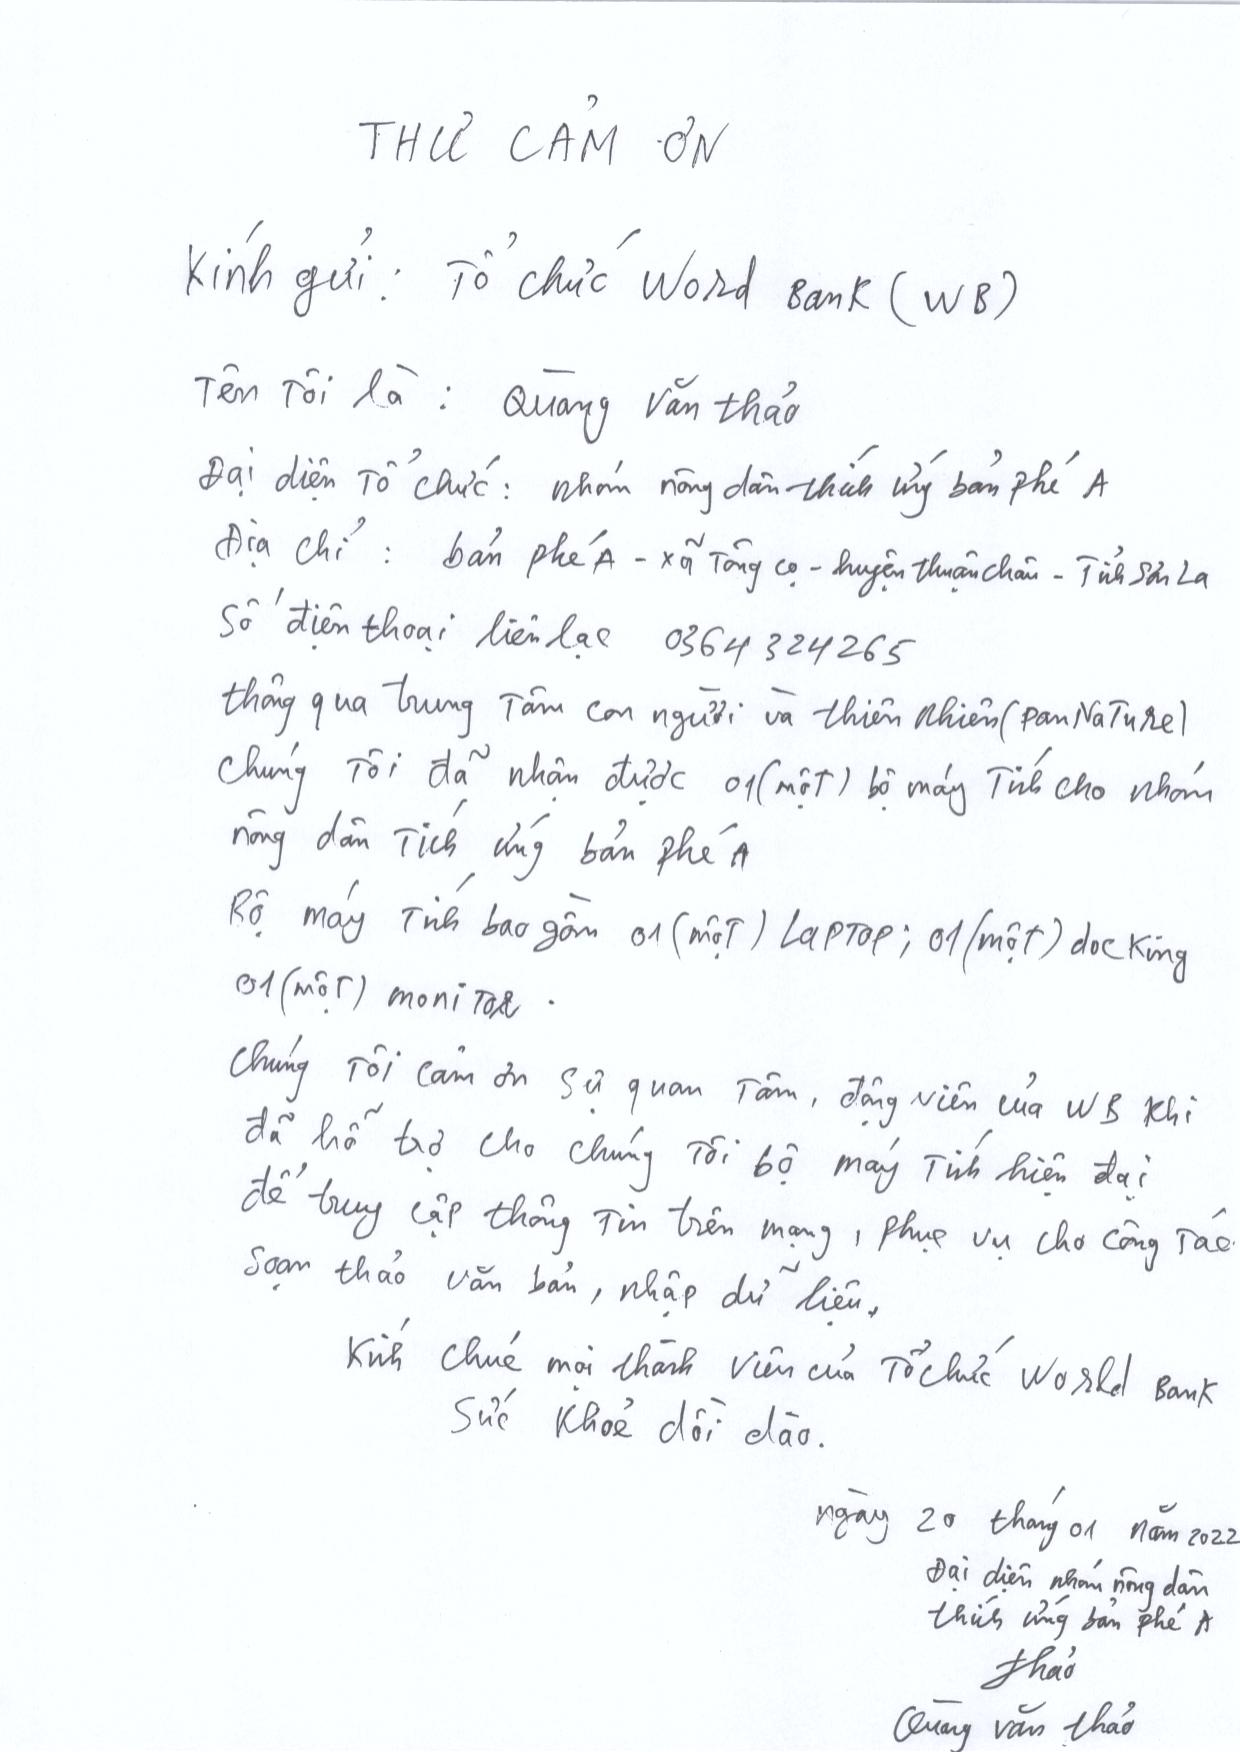 THƯ CẢM ƠN
Kính gửi: Tổ chức Word Bank (WB)
Tên Tôi là : Quàng Văn thảo
Đại diện Tổ chức: nhóm nông dân thích ứng bản phé A
Địa chỉ : bản phé A - xã Tông cọ - huyện thuận châu - Tỉnh Sơn La
Số điện thoại liên lạc 0364 324265
thông qua trung Tâm con người và thiên nhiên (panNaTure)
chúng Tôi đã nhận được 01(mộT) bộ máy Tính cho nhóm
nông dân Tích ứng bản phé A
Bộ máy Tính bao gồm 01 (mộT) LapTop; 01 (một) docking
01 (mộT) moniTor .
chúng Tôi cảm ơn sự quan Tâm, động viên của WB khi
đã hỗ trợ cho chúng Tôi bộ máy Tính hiện đại
để truy cập thông Tin trên mạng, phục vụ cho công Tác
soạn thảo văn bản, nhập dữ liệu,
Kính chúc mọi thành viên của Tổ chức World Bank
Sức khoẻ dồi dào.
ngày 20 tháng 01 năm 2022
Đại diện nhóm nông dân
thích ứng bản phé A
thảo
Quàng văn thảo